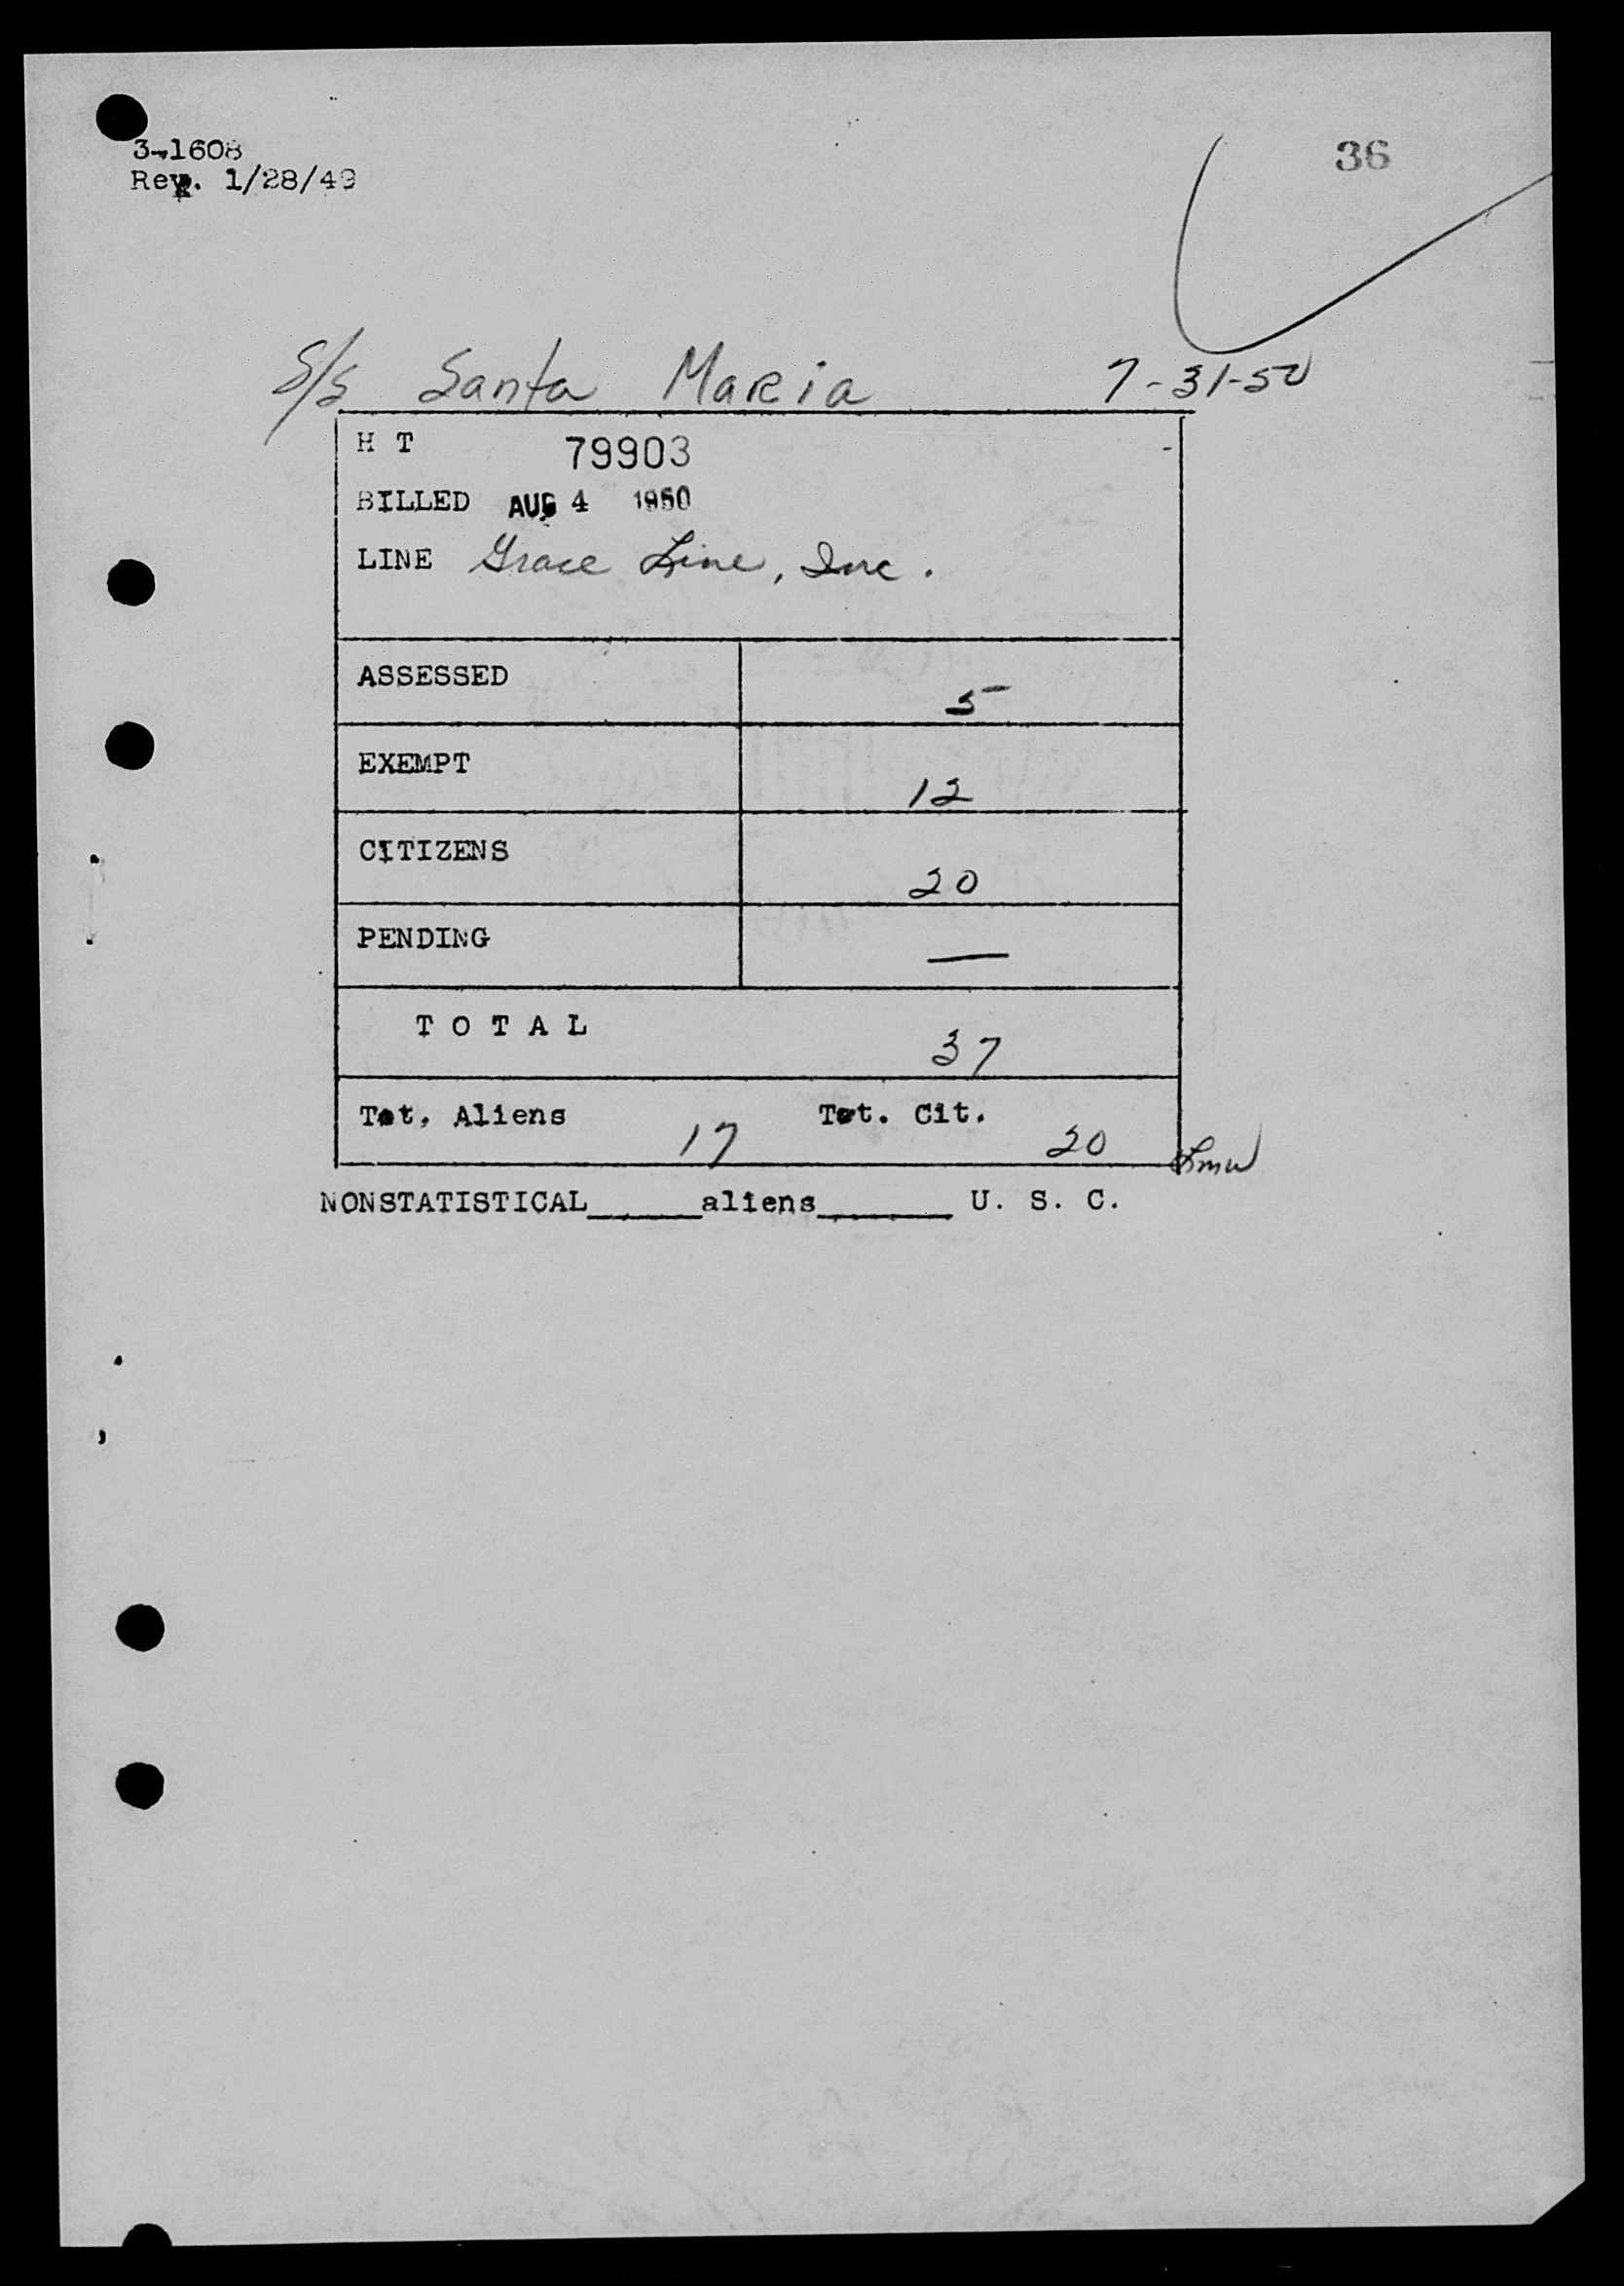 3-1608
Rev. 1/28/49
36
S/S Santa Maria 7-31-50
H T 79903
BILLED AUG 4 1950
LINE Grace Line, Inc.
ASSESSED 5
EXEMPT 12
CITIZENS 20
PENDING —
T O T A L 37
Tot. Aliens 17 Tot. Cit. 20
NONSTATISTICAL______aliens_______ U. S. C.